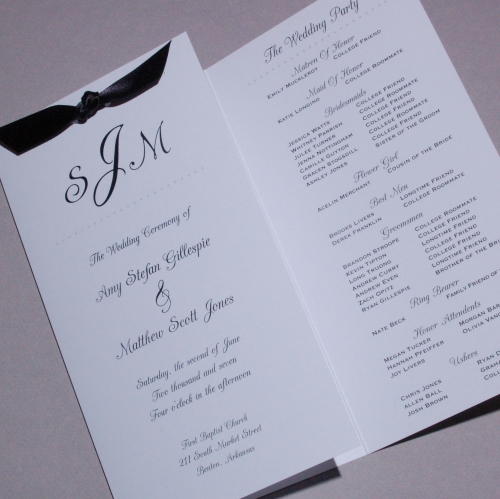 SJM
The Wedding Ceremony of
Amy Stefan Gillespie
&
Matthew Scott Jones
Saturday, the second of June
Two thousand and seven
Four o'clock in the afternoon
First Baptist Church
211 South Market Street
Benton, Arkansas
The Wedding Party
Matron Of Honor
Emily Muckleroy College Friend
Maid Of Honor
Katie Longino College Roommate
Bridesmaids
Jessica Watts College Friend
Whitney Parrish College Roommate
Julee Turner College Friend
Jenna Nottingham College Roommate
Camille Guyton College Friend
Gracen Stogsdill College Roommate
Ashley Jones Sister of the Groom
Flower Girl
Acelin Merchant Cousin of the Bride
Best Men
Brooke Livers Longtime Friend
Derek Franklin College Roommate
Groomsmen
Brandon Stroope College Roommate
Kevin Tipton College Friend
Long Truong Longtime Friend
Andrew Curry College Friend
Andrew Even College Friend
Zach Opitz Longtime Friend
Ryan Gillespie Brother of the Bride
Ring Bearer
Nate Beck Family Friend of
Honor Attendents
Megan Tucker Morgan Bar
Hannah Pfeiffer Olivia Vang
Joy Livers
Ushers
Chris Jones Ryan C
Allen Ball Graha
Josh Brown Col